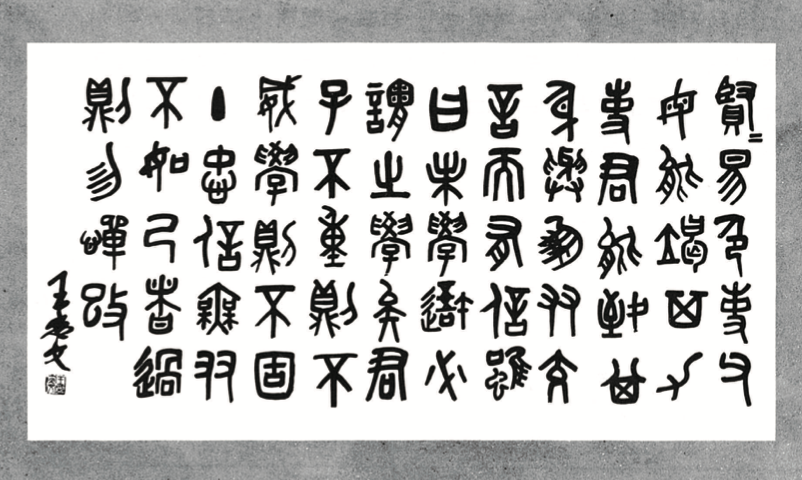 賢〻易色事父
母能竭其力
事君能致其
身與朋友交
言而有信雖
曰未學吾必
謂之學矣君
子不重則不
威學則不固
主忠信無友
不如己者過
則勿憚改
王